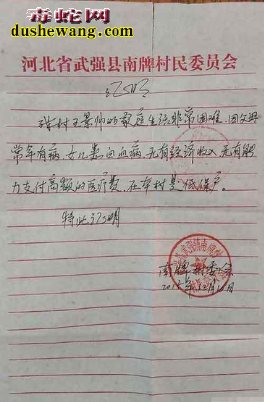 毒蛇网
dushewang.com
河北省武强县南牌村民委员会
证明
我村王景师的家庭生活非常困难,因父母
常年有病,女儿患白血病,无有经济收入,无有能
力支付高额的医疗费,在本村是低保户。
特此证明
南牌村委会